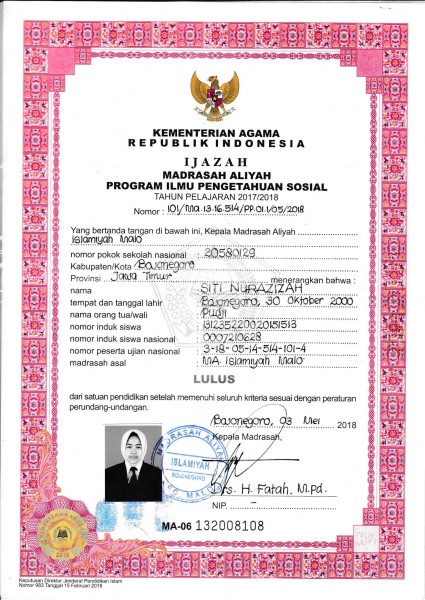 KEMENTERIAN AGAMA
REPUBLIK INDONESIA
IJAZAH
MADRASAH ALIYAH
PROGRAM ILMU PENGETAHUAN SOSIAL
TAHUN PELAJARAN 2017/2018
Nomor : 101/Ma.13.16.514/PP.01.1/05/2018
Yang bertanda tangan di bawah ini, Kepala Madrasah Aliyah
Islamiyah Malo
nomor pokok sekolah nasional : 20580129
Kabupaten/Kota Bojonegoro
Provinsi Jawa Timur menerangkan bahwa :
nama : SITI NURAZIZAH
tempat dan tanggal lahir : Bojonegoro, 30 Oktober 2000
nama orang tua/wali : Pudji
nomor induk siswa : 131235220020151513
nomor induk siswa nasional : 0007210628
nomor peserta ujian nasional : 3-18-05-14-514-101-4
madrasah asal : MA. Islamiyah Malo
LULUS
dari satuan pendidikan setelah memenuhi seluruh kriteria sesuai dengan peraturan
perundang-undangan.
Bojonegoro, 03 Mei 2018
Kepala Madrasah,
MADRASAH ALIYAH
ISLAMIYAH
BOJONEGORO
MALO
Drs. H. Fatah, M.Pd.
NIP. -
MA-06 132008108
2018
Keputusan Direktur Jenderal Pendidikan Islam
Nomor 983 Tanggal 15 Februari 2018